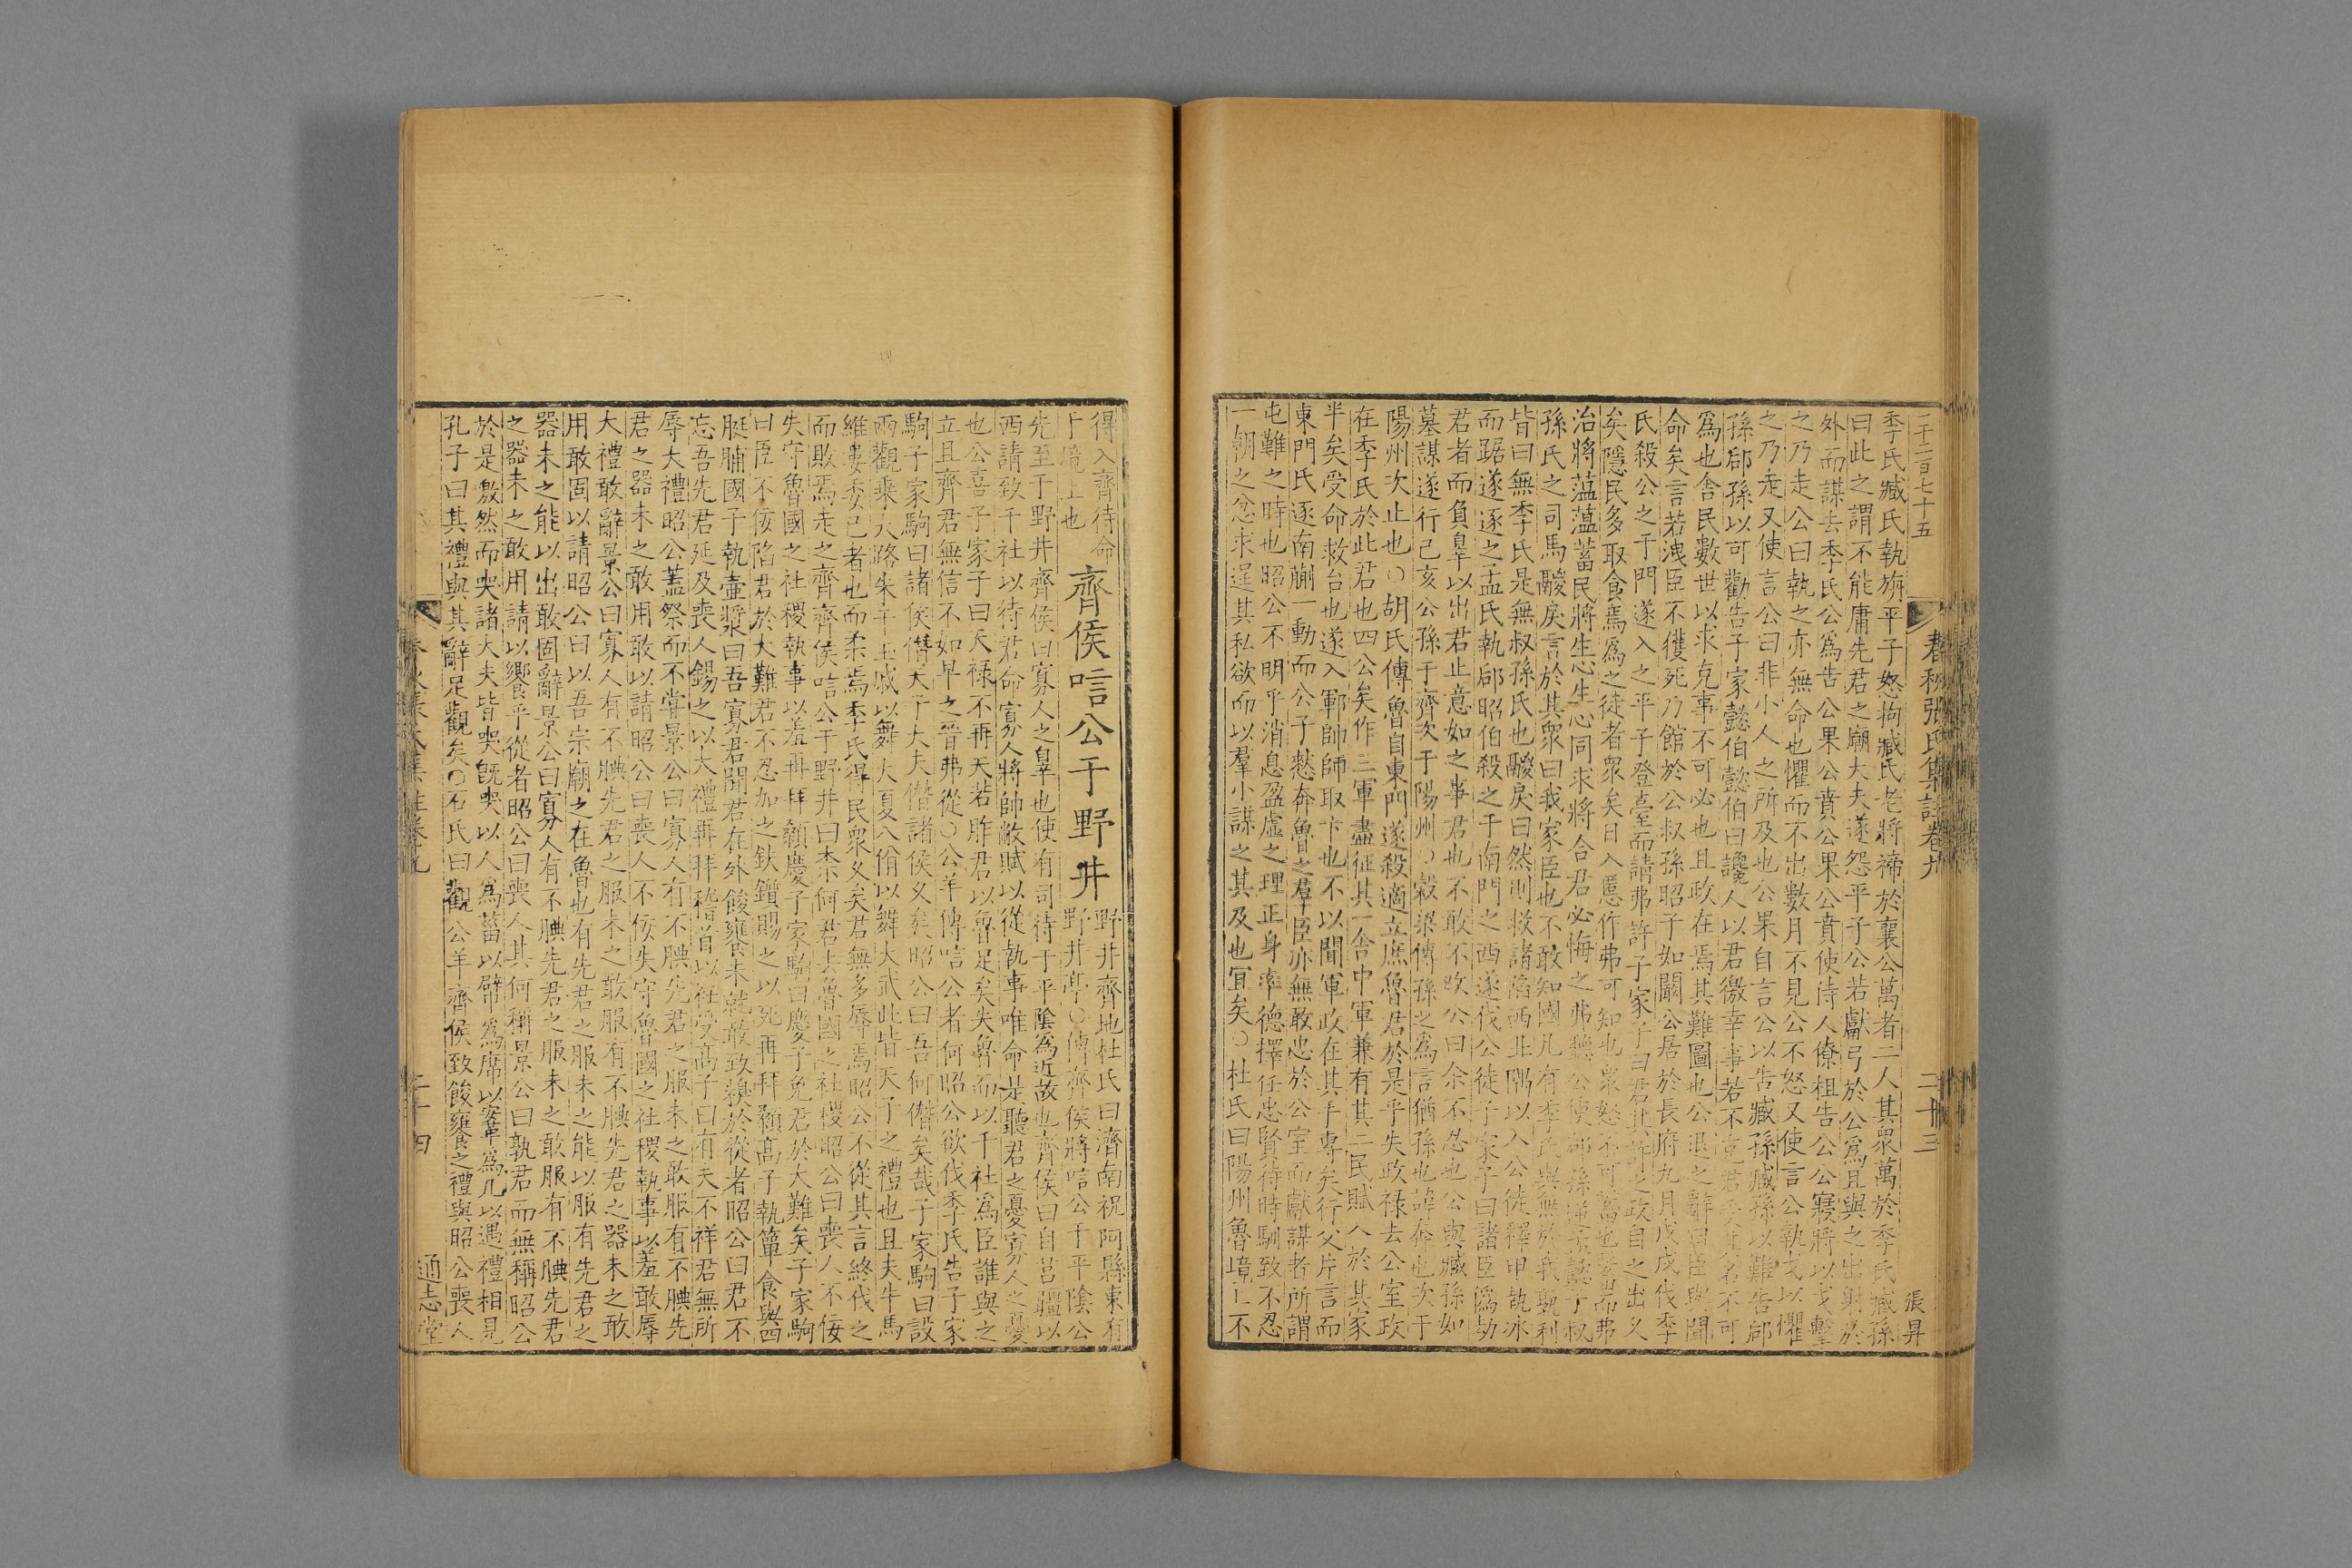 二千三百七十五
春秋張氏集註卷九 二十三 張昇
季氏臧氏執旃平子怒拘臧氏老將禘於襄公萬者二人其衆萬於季氏臧孫
曰此之謂不能庸先君之廟大夫遂怨平子公若獻弓於公爲且與之出射於
外而謀去季氏公爲告公果公賁公果公賁使侍人僚柤告公公寢將以戈擊
之乃走公曰執之亦無命也懼而不出數月不見公不怒又使言公執戈以懼
之乃走又使言公曰非小人之所及也公果自言公以告臧孫臧孫以難告郈
孫郈孫以可勸告子家懿伯懿伯曰讒人以君徼幸事若不克君受其名不可
爲也舍民數世以求克事不可必也且政在焉其難圖也公退之辭曰臣與聞
命矣言若洩臣不獲死乃館於公叔孫昭子如闞公居於長府九月戊戌伐季
氏殺公之于門遂入之平子登臺而請弗許子家子曰君其許之政自之出久
矣隱民多取食焉爲之徒者衆矣日入慝作弗可知也衆怒不可蓄也蓄而弗
治將薀薀蓄民將生心生心同求將合君必悔之弗聽公使郈孫逆孟懿子叔
孫氏之司馬鬷戾言於其衆曰我家臣也不敢知國凡有季氏與無於我孰利
皆曰無季氏是無叔孫氏也鬷戾曰然則救諸陷西北隅以入公徒釋甲執冰
而踞遂逐之孟氏執郈昭伯殺之于南門之西遂伐公徒子家子曰諸臣僞劫
君者而負辠以出君止意如之事君也不敢不改公曰余不忍也公與臧孫如
墓謀遂行己亥公孫于齊次于陽州○穀梁傳孫之爲言猶孫也諱奔也次于
陽州次止也○胡氏傳魯自東門遂殺適立庶魯君於是乎失政祿去公室政
在季氏於此君也四公矣作三軍盡征其一舍中軍兼有其二民賦入於其家
半矣受命救台也遂入鄆帥師取卞也不以聞軍政在其手專矣行父片言而
東門氏逐南蒯一動而公子憖奔魯之羣臣亦無敢忠於公室而獻謀者所謂
屯難之時也昭公不明乎消息盈虛之理正身率德擇任忠賢待時馴致不忍
一朝之忿求逞其私欲而以羣小謀之其及也宜矣○杜氏曰陽州魯境上不
得入齊待命
于境上也
齊侯唁公于野井
野井齊地杜氏曰濟南祝阿縣東有
野井亭○傳齊侯將唁公于平陰公
先至于野井齊侯曰寡人之辠也使有司待于平陰爲近故也齊侯曰自莒疆以
西請致千社以待君命寡人將帥敝賦以從執事唯命是聽君之憂寡人之憂
也公喜子家子曰天祿不再天若胙君以魯足矣失魯而以千社爲臣誰與之
立且齊君無信不如早之晉弗從○公羊傳唁公者何昭公欲伐季氏告子家
駒子家駒曰諸侯僭天子大夫僭諸侯久矣昭公曰吾何僭矣哉子家駒曰設
兩觀乘大路朱干玉戚以舞大夏八佾以舞大武此皆天子之禮也且夫牛馬
維婁委己者也而柔焉季氏得民衆久矣君無多辱焉昭公不從其言終伐之
而敗焉走之齊齊侯唁公于野井曰柰何君去魯國之社稷昭公曰喪人不佞
失守魯國之社稷執事以羞再拜顙慶子家駒曰慶子免君於大難矣子家駒
曰臣不佞陷君於大難君不忍加之鈇鑕賜之以死再拜顙高子執簞食與四
脡脯國子執壺漿曰吾寡君聞君在外餕饔未就敢致糗於從者昭公曰君不
忘吾先君延及喪人錫之以大禮再拜稽首以衽受高子曰有夫不祥君無所
辱大禮昭公蓋祭而不嘗景公曰寡人有不腆先君之服未之敢服有不腆先
君之器未之敢用敢以請昭公曰喪人不佞失守魯國之社稷執事以羞敢辱
大禮敢辭景公曰寡人有不腆先君之服未之敢服有不腆先君之器未之敢
用敢固以請昭公曰以吾宗廟之在魯也有先君之服未之能以服有先君之
器未之能以出敢固辭景公曰寡人有不腆先君之服未之敢服有不腆先君
之器未之敢用請以饗乎從者昭公曰喪人其何稱景公曰孰君而無稱昭公
於是噭然而哭諸大夫皆哭既哭以人爲菑以幦爲席以鞌爲几以遇禮相見
孔子曰其禮與其辭足觀矣○石氏曰觀公羊齊侯致餕饔之禮與昭公喪人
春秋張氏集註卷九 二十四 通志堂